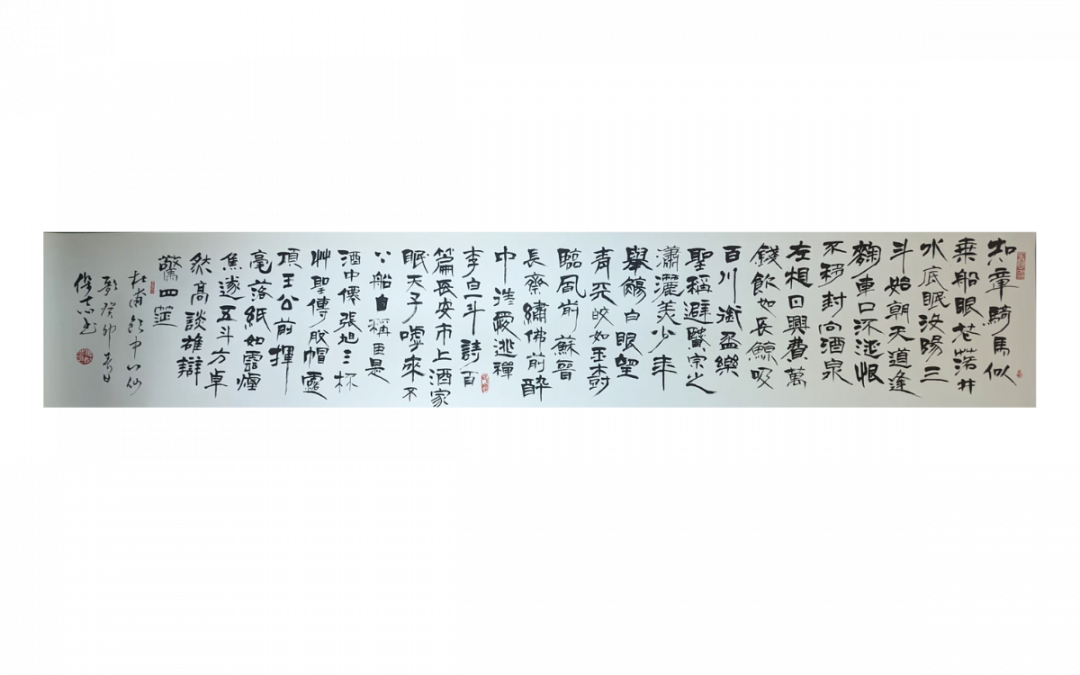 知章騎馬似
乘船眼花落井
水底眠汝陽三
斗始朝天道逢
麴車口流涎恨
不移封向酒泉
左相日興費萬
錢飲如長鯨吸
百川銜盃樂
聖稱避賢宗之
瀟灑美少年
舉觴白眼望
青天皎如玉樹
臨風前蘇晉
長齋繡佛前醉
中往愛逃禪
李白一斗詩百
篇長安市上酒家
眠天子嘑來不
船自稱臣是
酒中僊張旭三杯
艸聖傳脫帽露
頂王公前揮
毫落紙如雲煙
焦遂五斗方卓
然高談雄辯
驚四筵
杜甫飲中八仙
歌癸卯春日
書